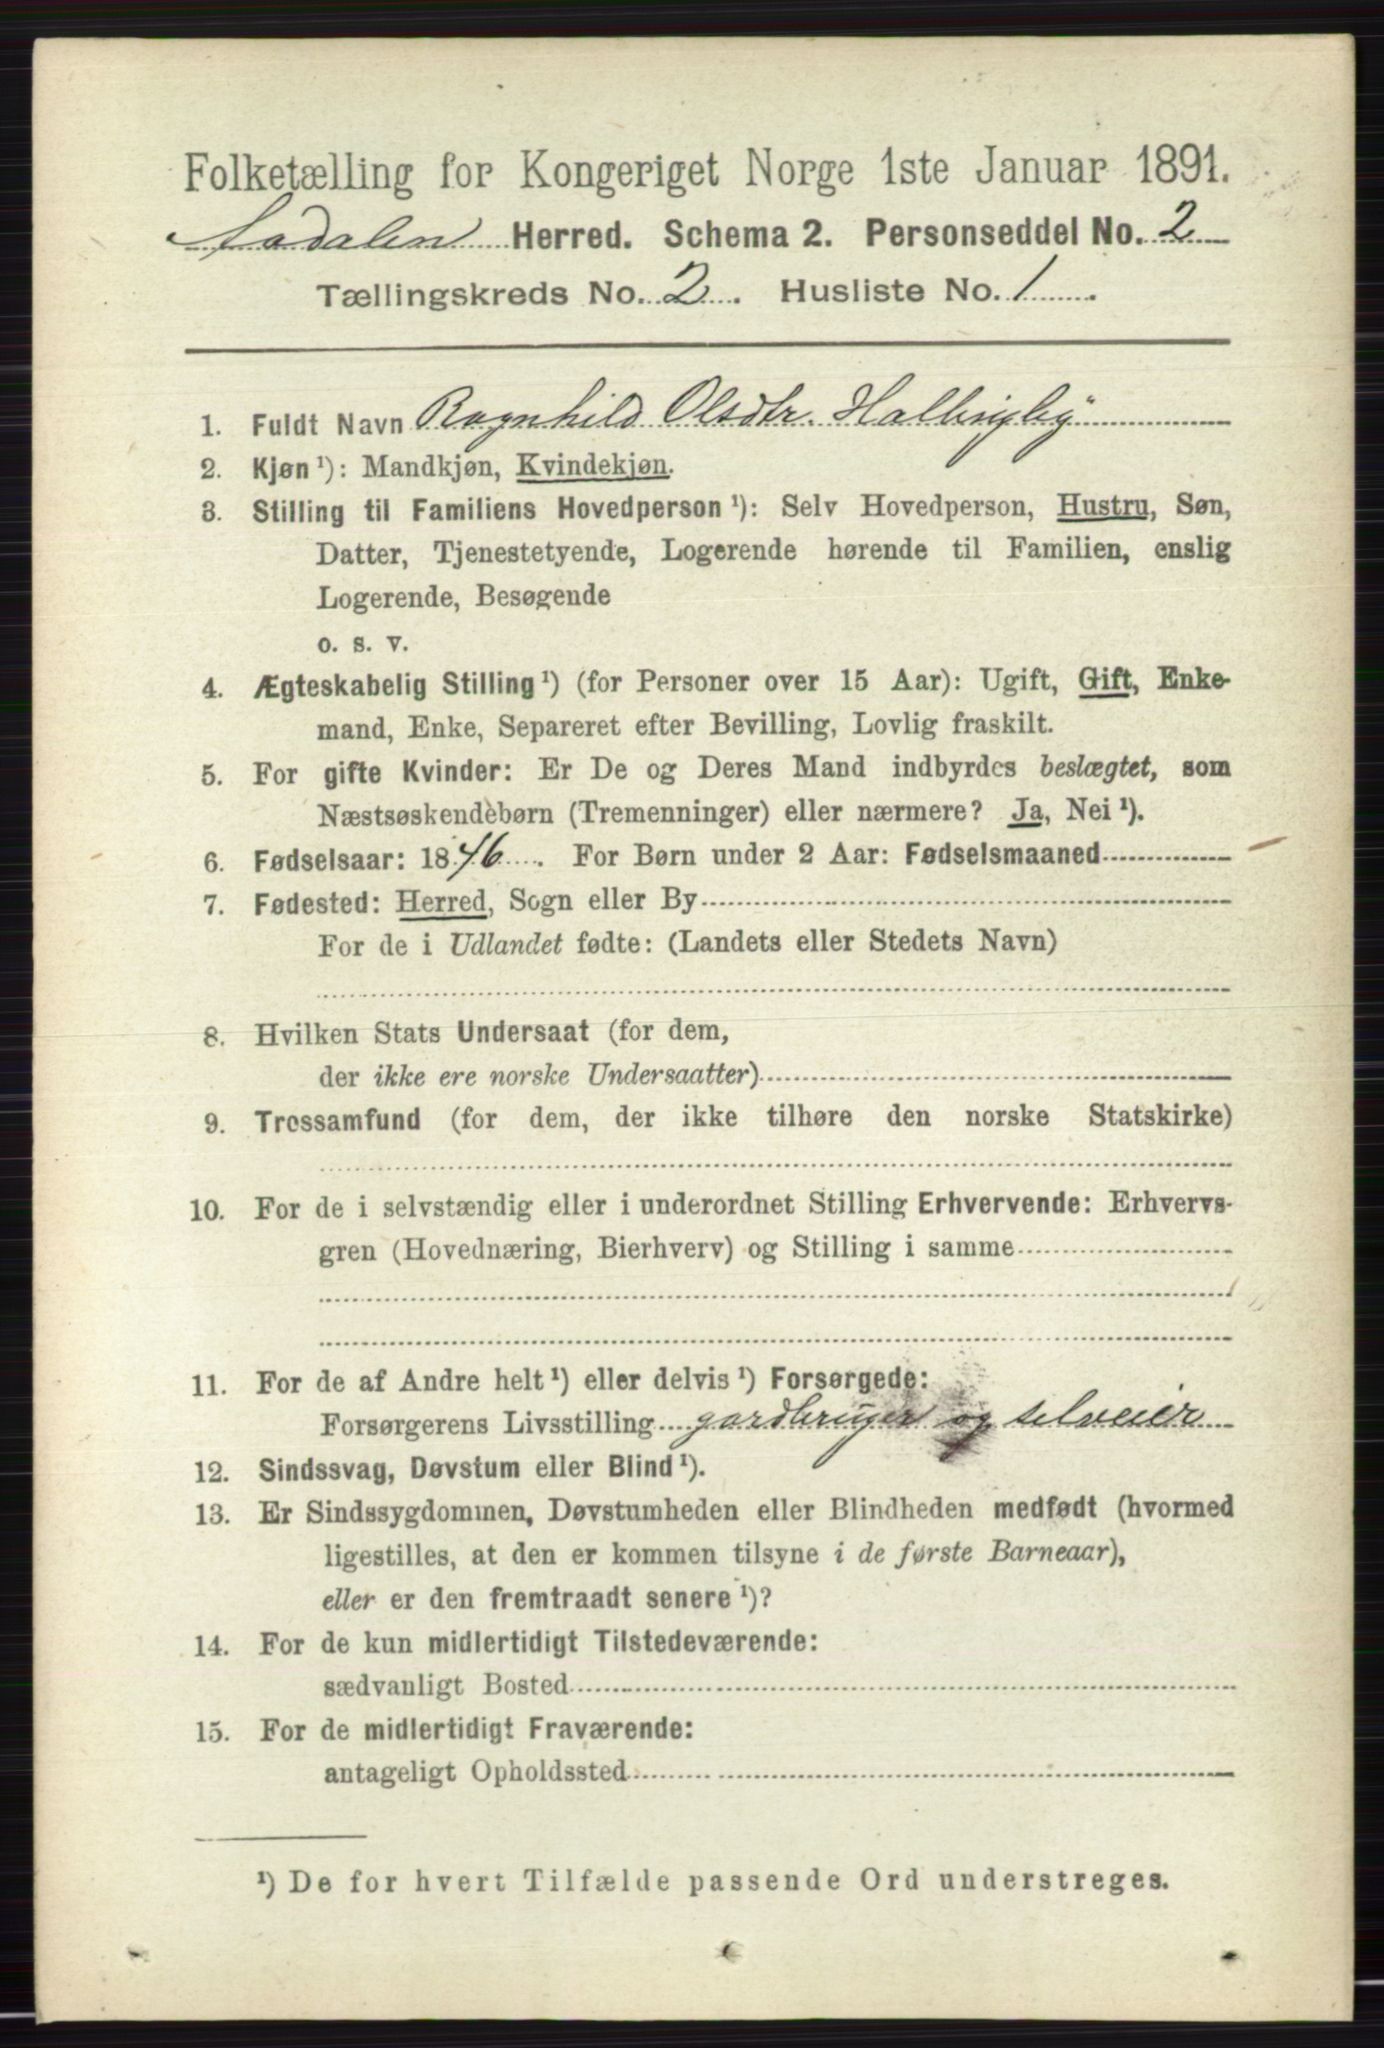 Folketælling for Kongeriget Norge 1ste Januar 1891.
Aadalen Herred. Schema 2. Personseddel No. 2
Tællingskreds No. 2. Husliste No. 1.
1. Fuldt Navn Ragnhild Olsdtr. Hallingby
2. Kjøn ¹): Mandkjøn, Kvindekjøn.
3. Stilling til Familiens Hovedperson ¹): Selv Hovedperson, Hustru, Søn,
Datter, Tjenestetyende, Logerende hørende til Familien, enslig
Logerende, Besøgende
o. s. v.
4. Ægteskabelig Stilling ¹) (for Personer over 15 Aar): Ugift, Gift, Enke-
mand, Enke, Separeret efter Bevilling, Lovlig fraskilt.
5. For gifte Kvinder: Er De og Deres Mand indbyrdes beslægtet, som
Næstsøskendebørn (Tremenninger) eller nærmere? Ja, Nei ¹).
6. Fødselsaar: 1846. For Børn under 2 Aar: Fødselsmaaned
7. Fødested: Herred, Sogn eller By
For de i Udlandet fødte: (Landets eller Stedets Navn)
8. Hvilken Stats Undersaat (for dem,
der ikke ere norske Undersaatter)
9. Trossamfund (for dem, der ikke tilhøre den norske Statskirke)
10. For de i selvstændig eller i underordnet Stilling Erhvervende: Erhvervs-
gren (Hovednæring, Bierhverv) og Stilling i samme
11. For de af Andre helt ¹) eller delvis ¹) Forsørgede:
Forsørgerens Livsstilling gardbruger og selveier
12. Sindssvag, Døvstum eller Blind ¹).
13. Er Sindssygdommen, Døvstumheden eller Blindheden medfødt (hvormed
ligestilles, at den er kommen tilsyne i de første Barneaar),
eller er den fremtraadt senere ¹)?
14. For de kun midlertidigt Tilstedeværende:
sædvanligt Bosted
15. For de midlertidigt Fraværende:
antageligt Opholdssted
¹) De for hvert Tilfælde passende Ord understreges.